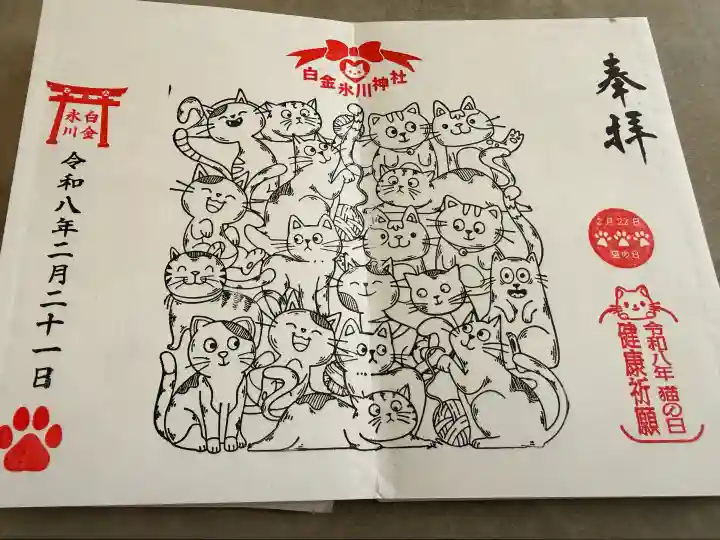 白金氷川神社
奉拝
2月22日
猫の日
令和八年 猫の日
健康祈願
白金
氷川
令和八年二月二十一日